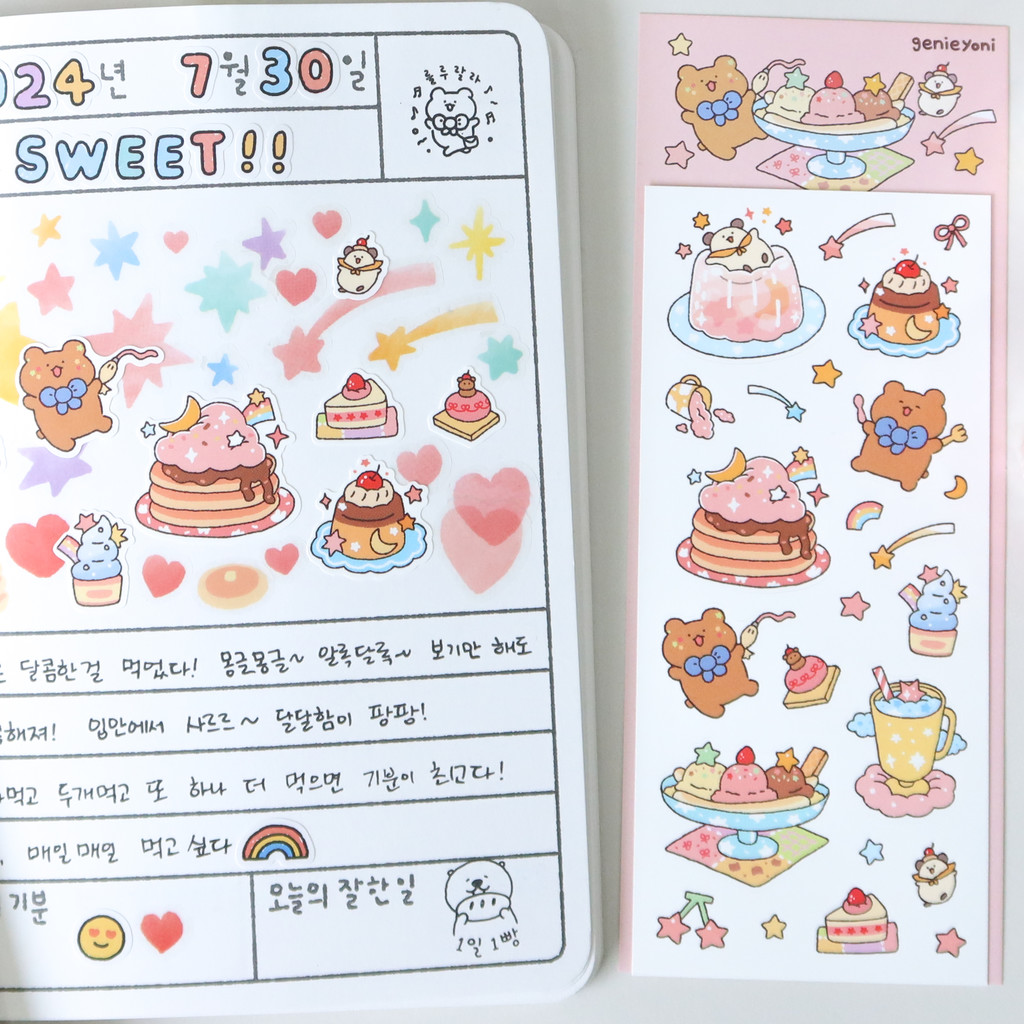 024년 7월 30일
룰루랄라
SWEET!!
달콤한걸 먹었다! 몽글몽글~ 알록달록~ 보기만 해도
해져! 입안에서 사르르~ 달달함이 팡팡!
먹고 두개먹고 또 하나 더 먹으면 기분이 최고다!
매일매일 먹고 싶다
기분
오늘의 잘한 일
1일 1빵
genieyoni